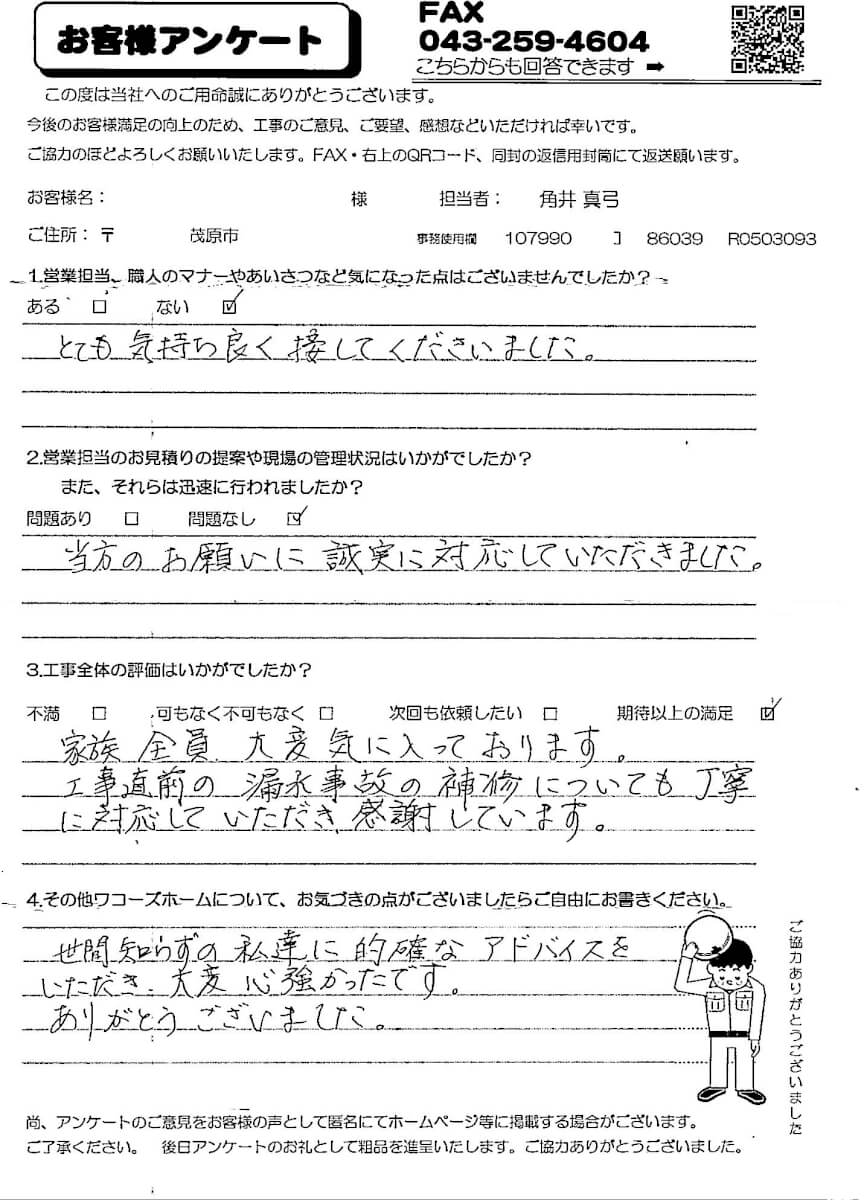 お客様アンケート
FAX
043-259-4604
こちらからも回答できます ➡
この度は当社へのご用命誠にありがとうございます。
今後のお客様満足の向上のため、工事のご意見、ご要望、感想などいただければ幸いです。
ご協力のほどよろしくお願いいたします。FAX・右上のQRコード、同封の返信用封筒にて返送願います。
お客様名： 様 担当者： 角井 真弓
ご住所：〒 茂原市 事務使用欄 107990 ] 86039 R0503093
1.営業担当、職人のマナーやあいさつなど気になった点はございませんでしたか？
ある □ ない ☑
とても 気持ち良く 接してくださいました。
2.営業担当のお見積りの提案や現場の管理状況はいかがでしたか？
また、それらは迅速に行われましたか？
問題あり □ 問題なし ☑
当方の お願いに 誠実に 対応していただきました。
3.工事全体の評価はいかがでしたか？
不満 □ 可もなく不可もなく □ 次回も依頼したい □ 期待以上の満足 ☑
家族 全員 大変 気に入って おります。
工事直前の 漏水事故の 補修についても 丁寧
に対応して いただき 感謝しています。
4.その他ワコーズホームについて、お気づきの点がございましたらご自由にお書きください。
世間知らずの 私達に 的確な アドバイスを
いただき、大変 心強かったです。
ありがとう ございました。
ご協力ありがとうございました
尚、アンケートのご意見をお客様の声として匿名にてホームページ等に掲載する場合がございます。
ご了承ください。 後日アンケートのお礼として粗品を進呈いたします。ご協力ありがとうございました。